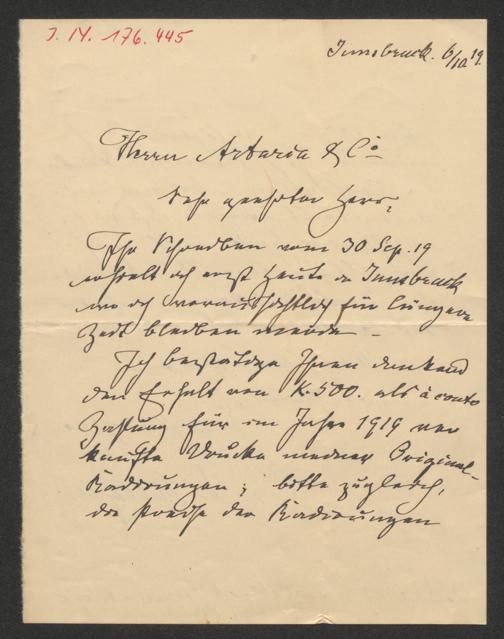 J. N. 176.445
Innsbruck. 6/10 19.
Herrn Artaria & Co
Sehr geehrter Herr,
Ihr Schreiben vom 30 Sep. 19
erhielt ich erst heute in Innsbruck
wo ich voraussichtlich für längere
Zeit bleiben werde –
Ich bestätige Ihnen dankend
den Erhalt von K. 500. als à conto
Zahlung für im Jahre 1919 ver
kaufte Drucke meiner Original-
Radierungen; bitte zugleich,
die Preise der Radierungen